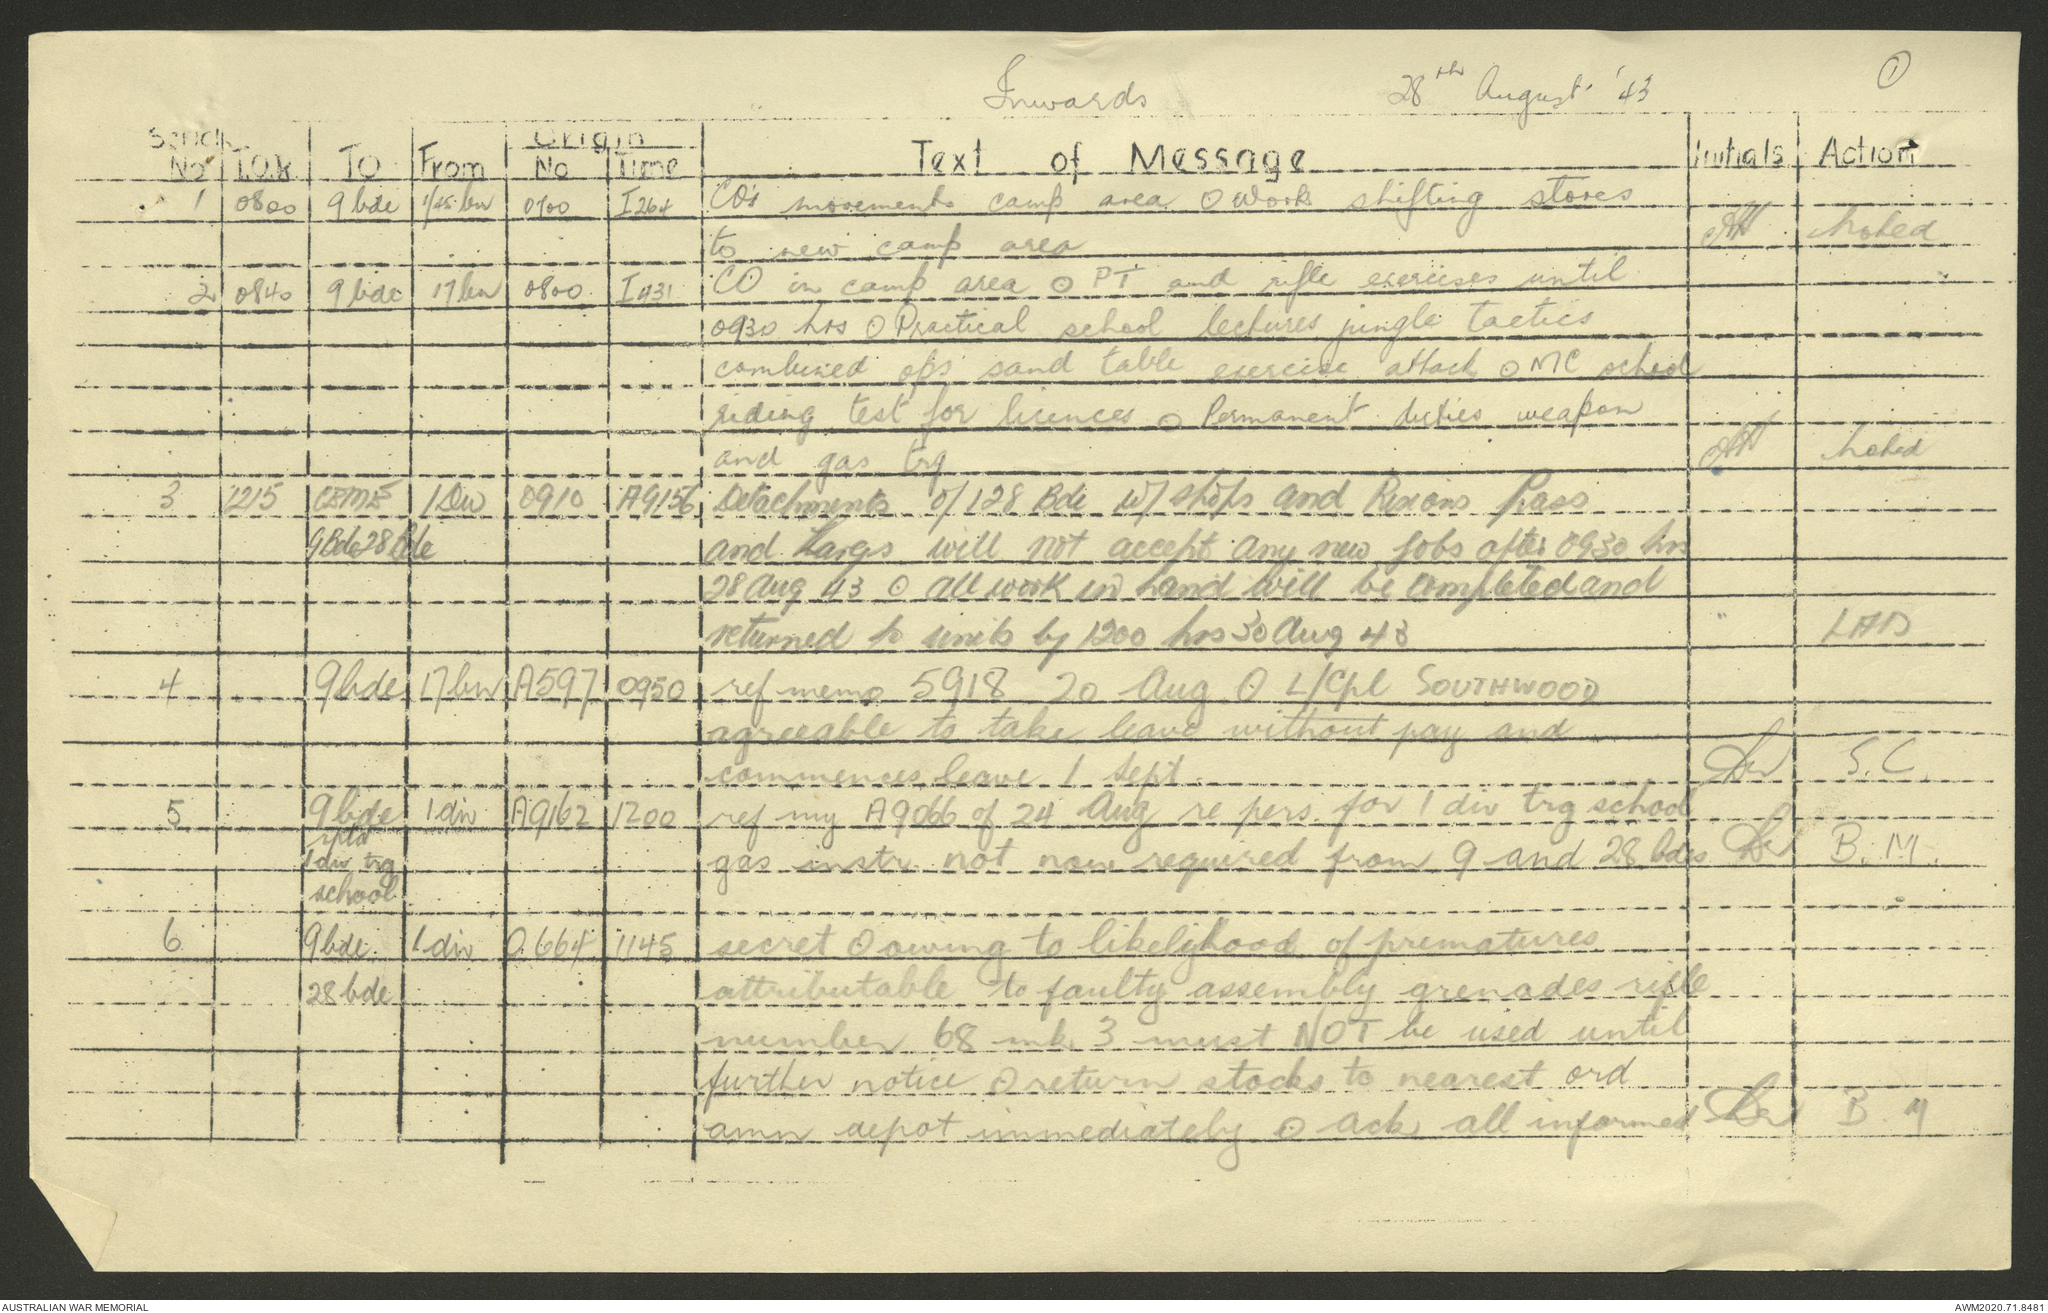 Inwards 28th August '43 ①
Serial Origin
No T.O.R To From No Time Text of Message Initials Action
1 0800 9 bde 1/45 bn 0700 I264 CO's movements camp area ⊙ Work shifting stores
to new camp area noted
2 0840 9 bde 17 bn 0800 I431 CO in camp area ⊙ PT and rifle exercises until
0930 hrs ⊙ Practical school lectures jungle tactics
combined ops sand table exercise attack ⊙ MC school
riding test for licences ⊙ Permanent duties weapon
and gas trg noted
3 1215 CEME 1 Div 0910 A9156 Detachments of 128 Bde W/shops and Rixons Pass
9 Bde 28 Bde and Kargs will not accept any new jobs after 0930 hrs
28 Aug 43 ⊙ All work in hand will be completed and
returned to units by 1200 hrs 30 Aug 43 " LAD
4 9 bde 17 bn A597 0950 ref memo 5918 20 Aug ⊙ L/Cpl SOUTHWOOD
agreeable to take leave without pay and
commences leave 1 Sept. S.C.
5 9 bde 1 div A9162 1200 ref my A9066 of 24 Aug re pers. for 1 div trg school
rptd
1 div trg gas instr. not now required from 9 and 28 bdes B.M.
school
6 9 bde 1 div O.664 1145 secret ⊙ owing to likelyhood of prematures
28 bde attributable to faulty assembly grenades rifle
number 68 mk 3 must NOT be used until
further notice ⊙ return stocks to nearest ord
amn depot immediately ⊙ ack all informed B M
AUSTRALIAN WAR MEMORIAL AWM2020.71.8481